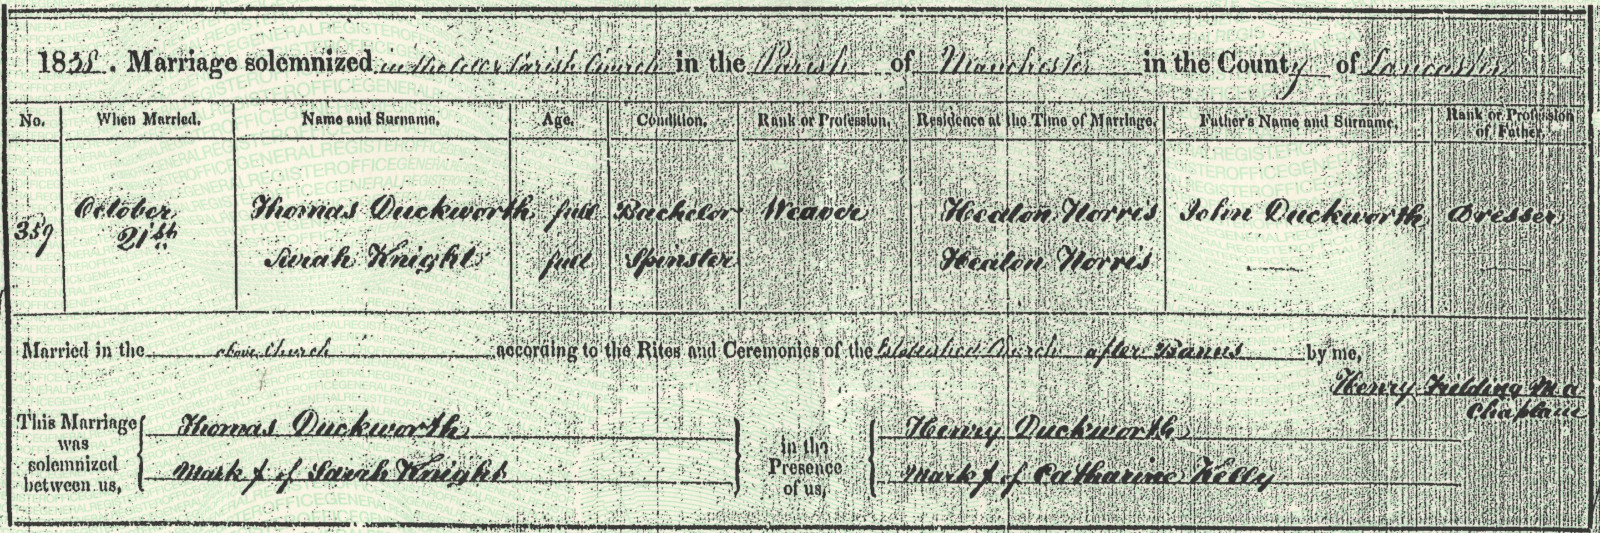 1838. Marriage solemnized in the Parish Church in the Parish of Manchester in the County of Lancaster
No. When Married. Name and Surname. Age. Condition. Rank or Profession. Residence at the Time of Marriage. Father's Name and Surname. Rank or Profession of Father.
359 October 21st Thomas Duckworth full Bachelor Weaver Heaton Norris John Duckworth Dresser
Sarah Knight full Spinster Heaton Norris
Married in the above Church according to the Rites and Ceremonies of the Established Church after Banns by me,
Henry Fielding M.a
Chaplain
This Marriage was solemnized between us,
Thomas Duckworth
Mark X of Sarah Knight
in the Presence of us,
Henry Duckworth
Mark X of Catharine Kelly